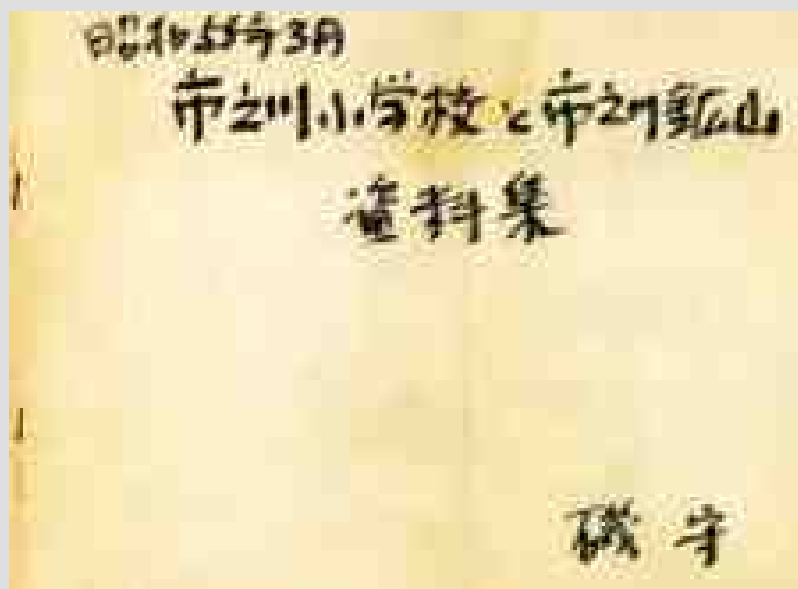 昭和55年3月
市之川小学校と市之川鉱山
資料集
磯 守